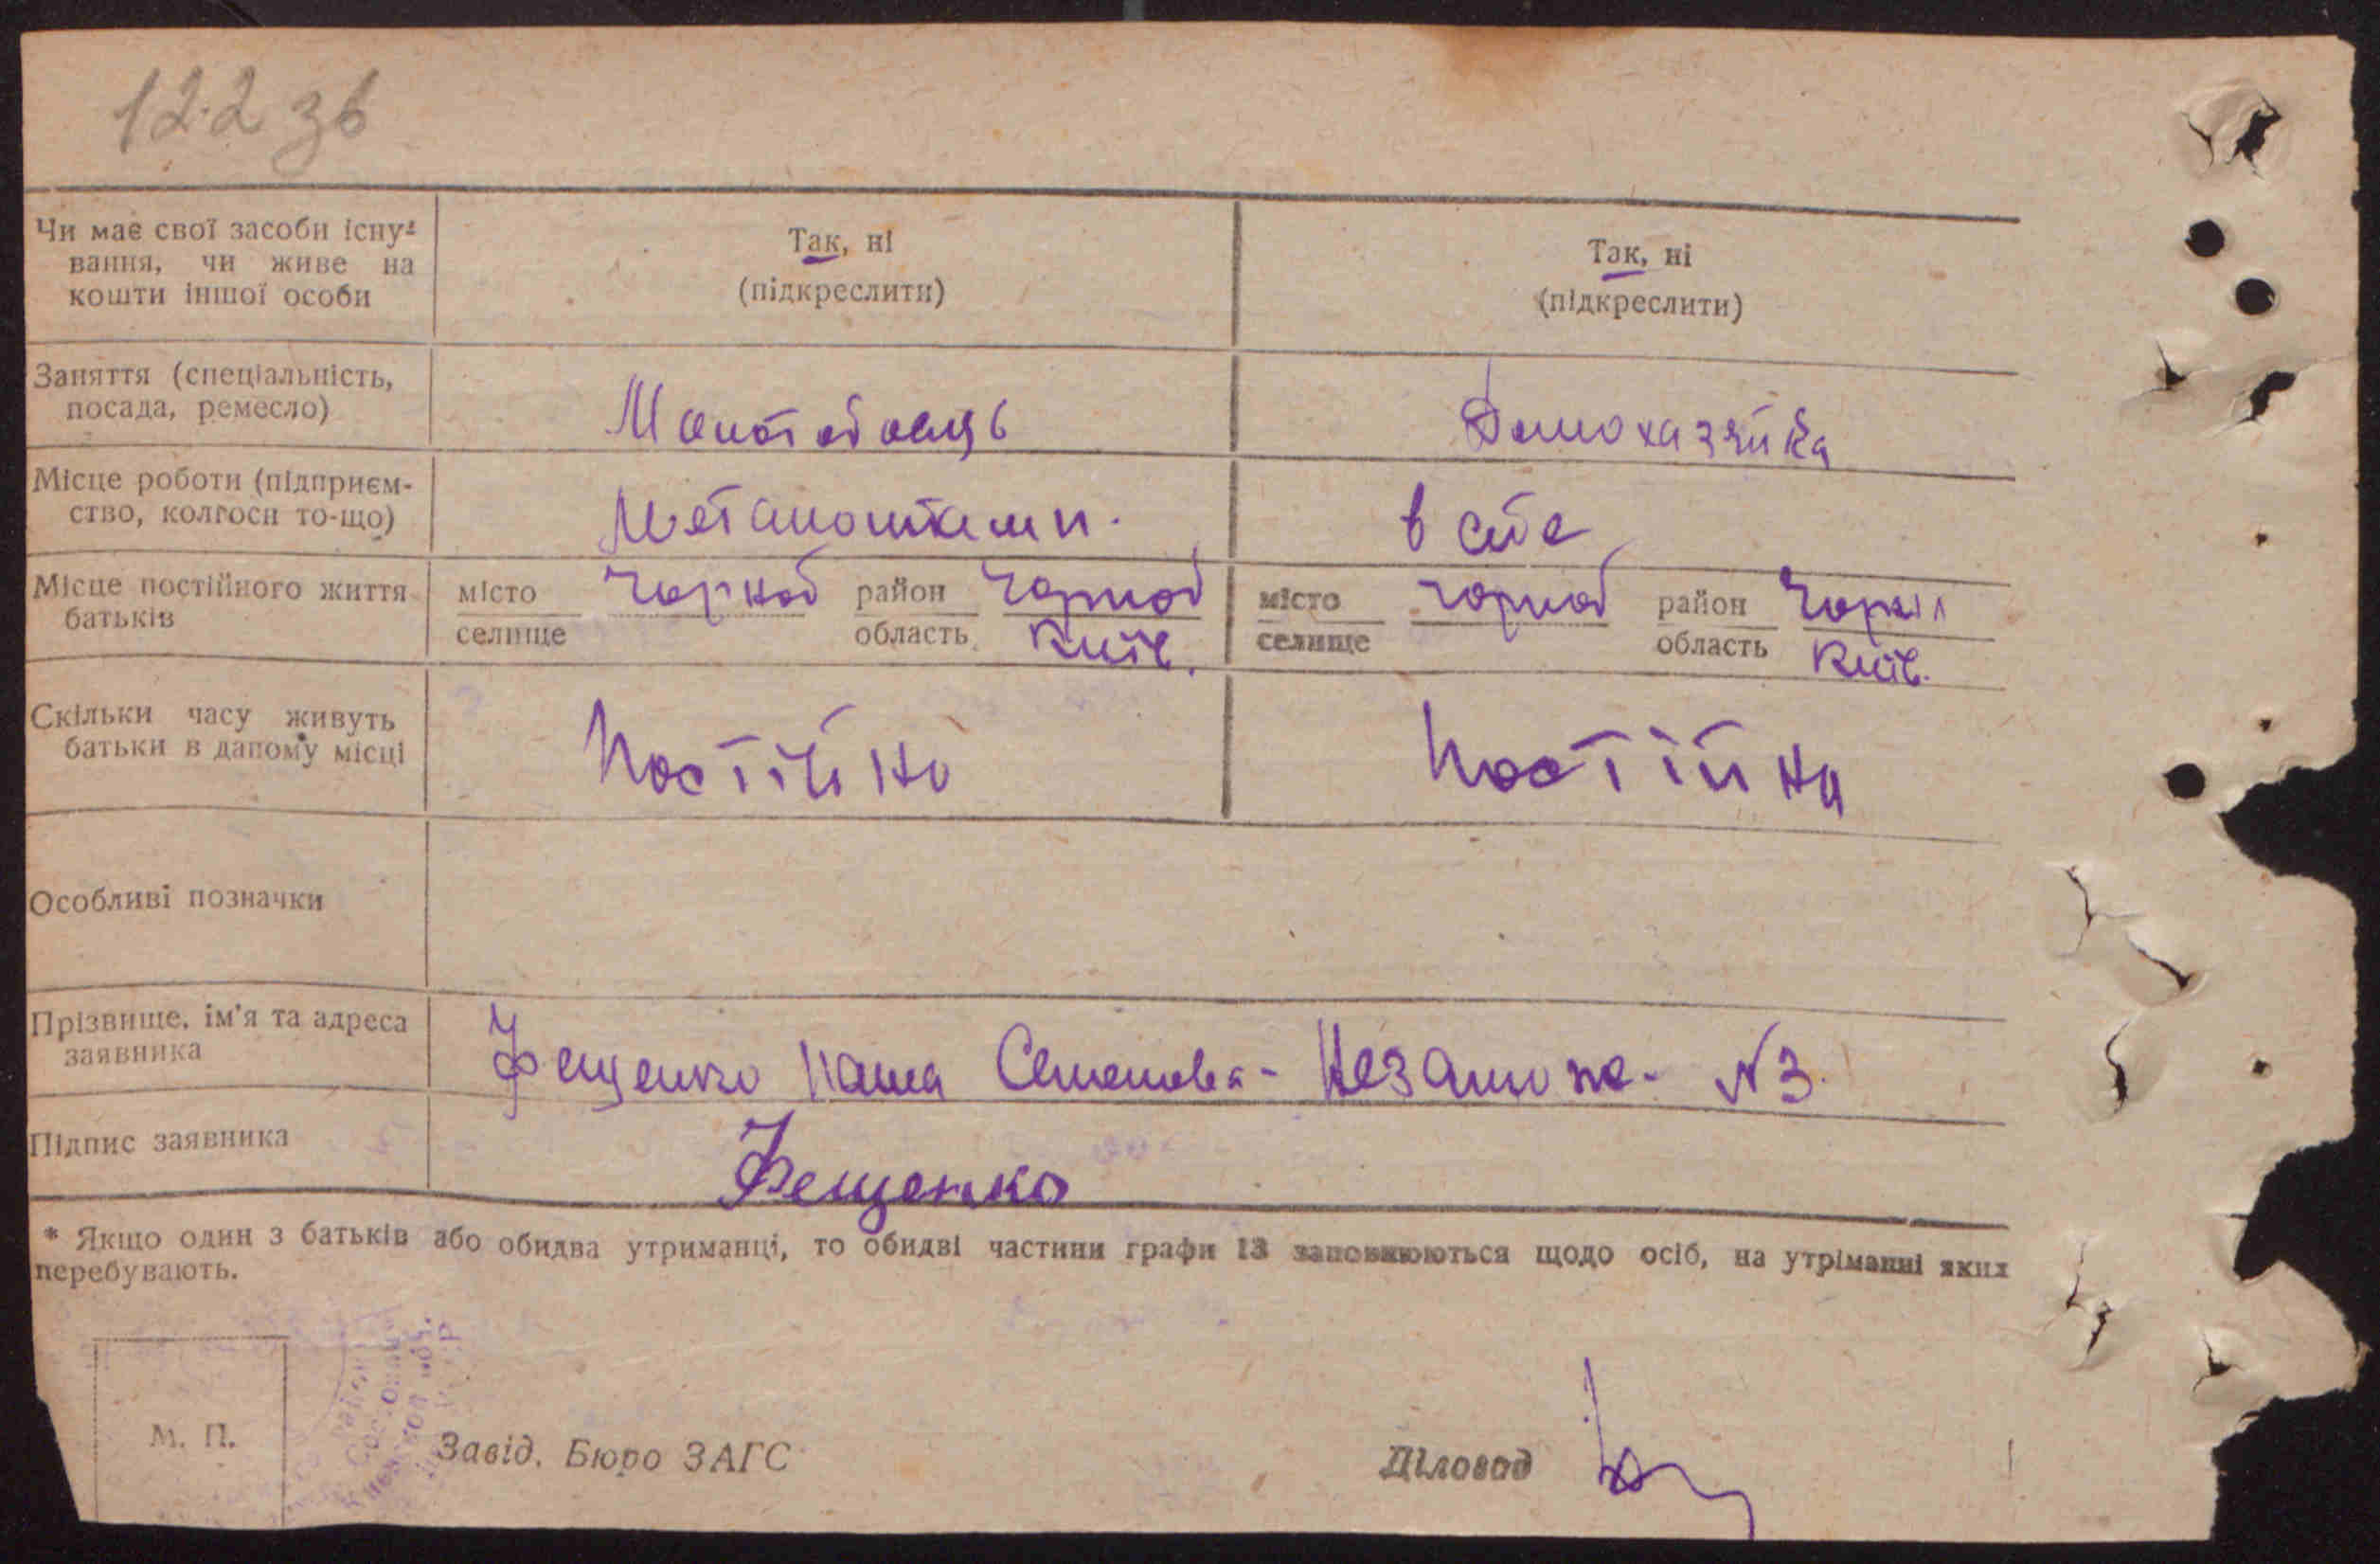 122 зв
Чи має свої засоби існу-
вання, чи живе на
кошти іншої особи
Так, ні
(підкреслити)
Так, ні
(підкреслити)
Заняття (спеціальність,
посада, ремесло)
Домохазяйка
Місце роботи (підприєм-
ство, колгосп то-що)
в
Місце постійного життя
батьків
місто Чорноб район Чорноб
селище область Київ.
місто Чорноб район
селище область Київ.
Скільки часу живуть
батьки в даному місці
Постійно
Постійна
Особливі позначки
Прізвище, ім'я та адреса
заявника
Фещенко Семеновка - Незаможе- №3.
Підпис заявника
Фещенко
* Якщо один з батьків або обидва утриманці, то обидві частини графи 13 заповнюються щодо осіб, на утріманні яких
перебувають.
М. П.
Завід. Бюро ЗАГС
Діловод